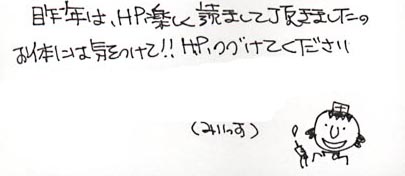 昨年は、HP楽しく読まして頂きました。
お体には気をつけて!! HP、つづけてください
(みりっす)